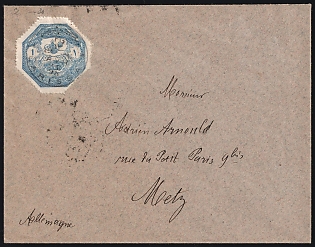 1 1
Monsieur
Adrien Arnould
rue du Pont
Metz
Allemagne